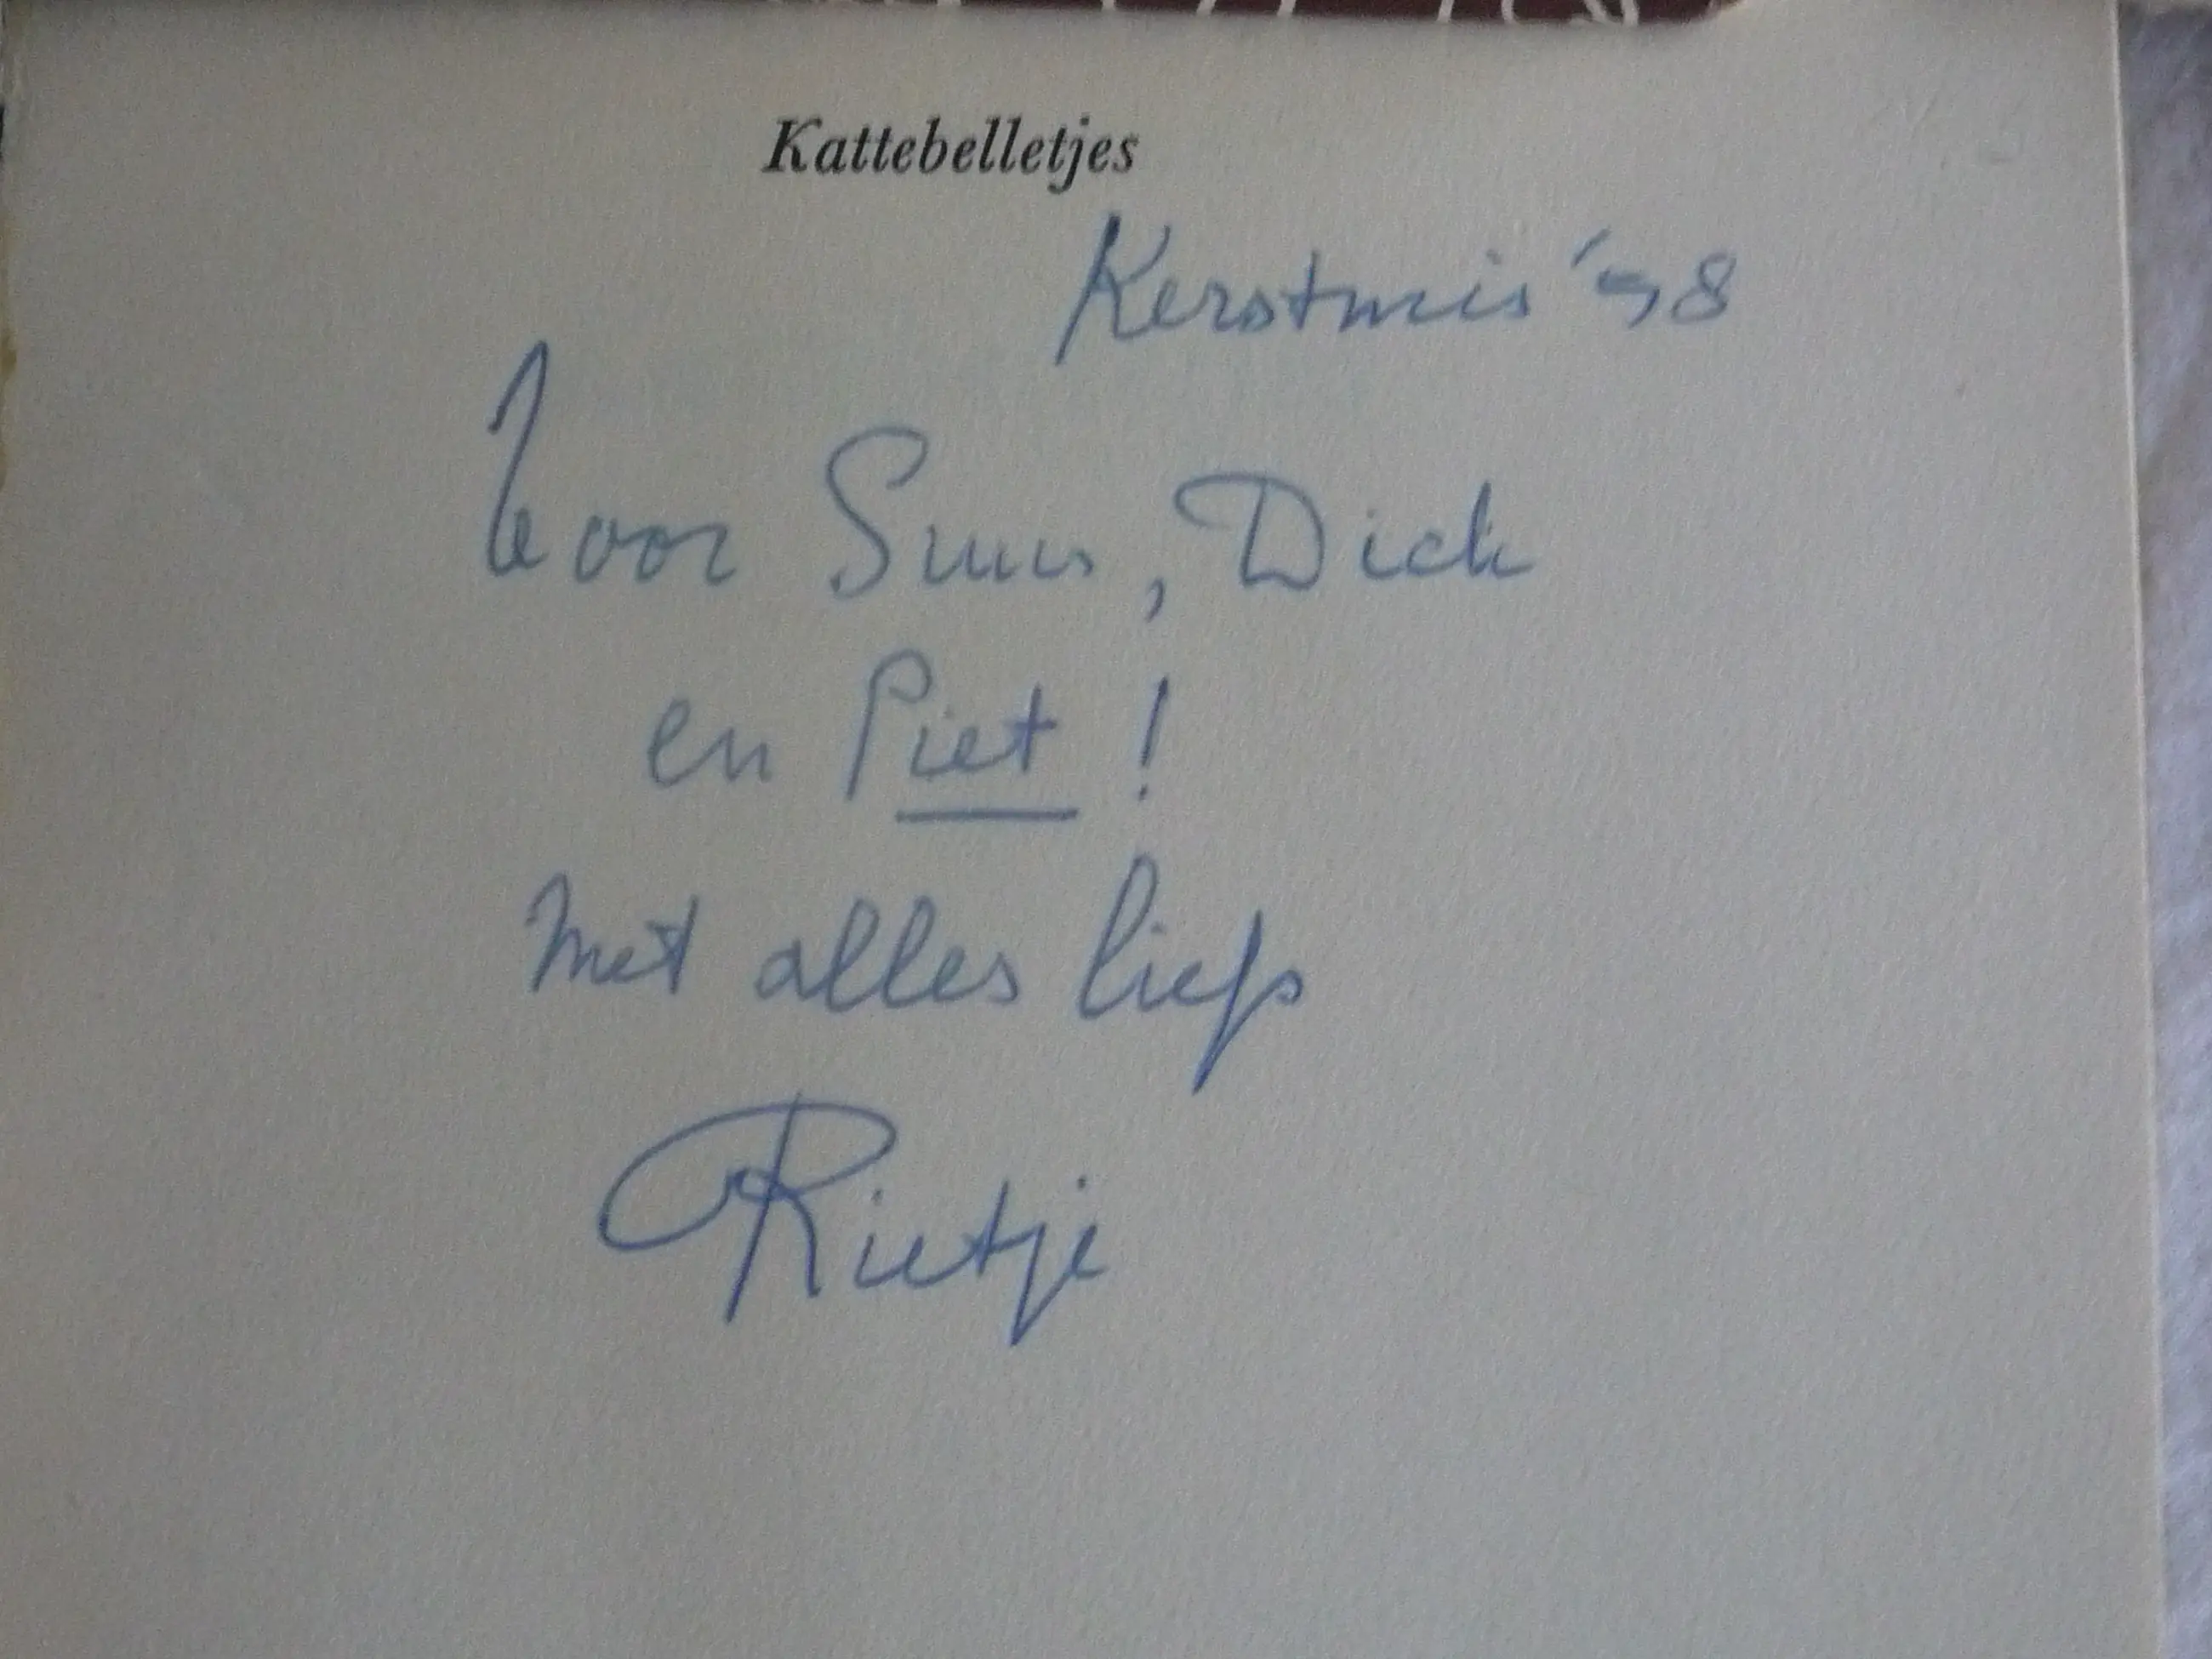 Kattebelletjes
Kerstmis '78
Voor Suus, Dick
en Piet !
Met alles liefs
Rietje